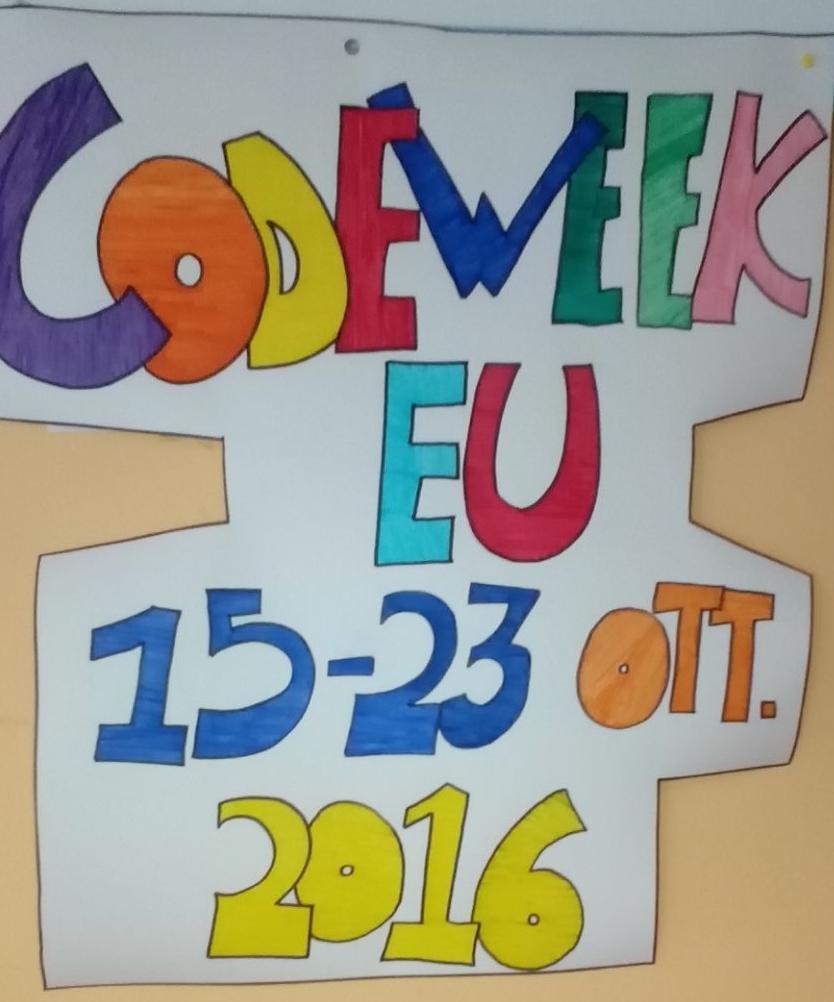 CODEWEEK
EU
15-23 OTT.
2016